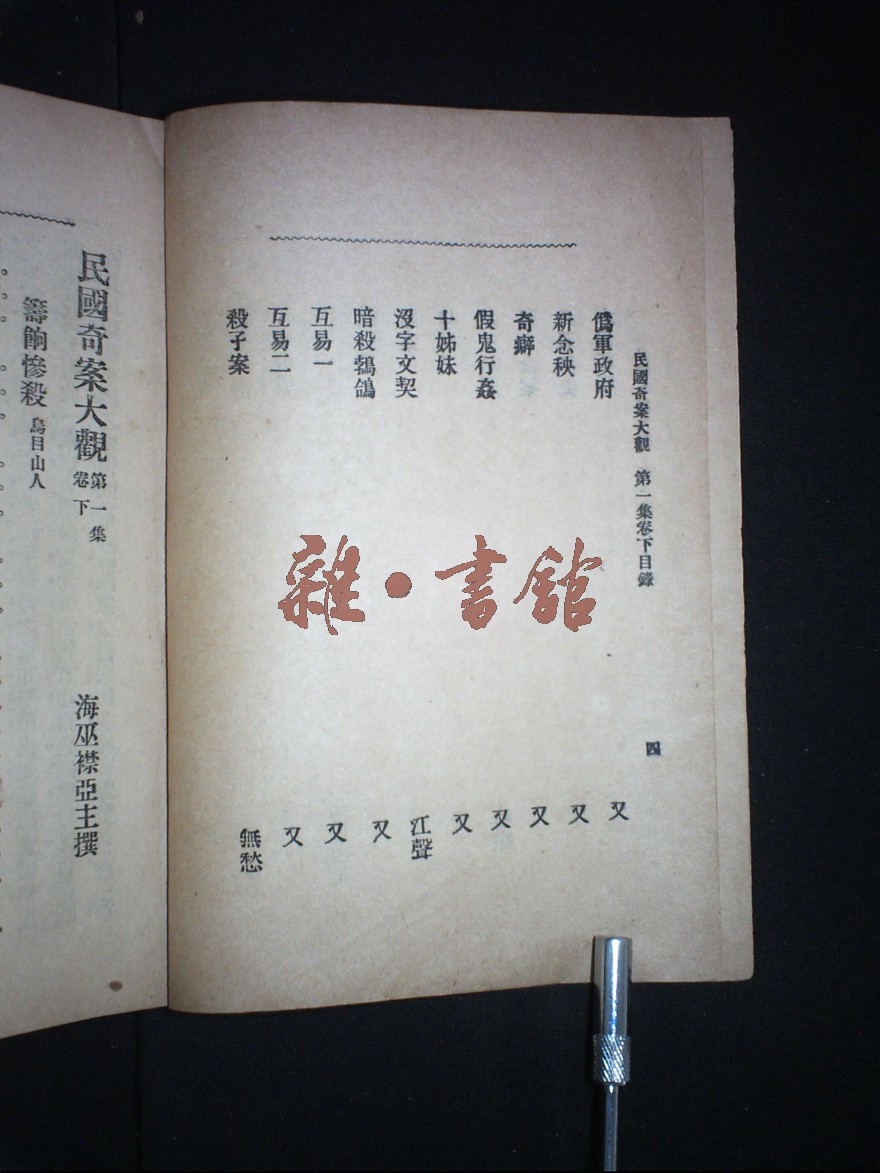 民國奇案大觀 第一集卷下目錄
四
僞軍政府 又
新念秧 又
奇癖 又
假鬼行姦 又
十姊妹 又
沒字文契 江聲
暗殺鵓鴿 又
互易一 又
互易二 又
殺子案 無愁
雜·書館
民國奇案大觀 第一集卷下 海巫襟亞主撰
籌餉慘殺 烏目山人